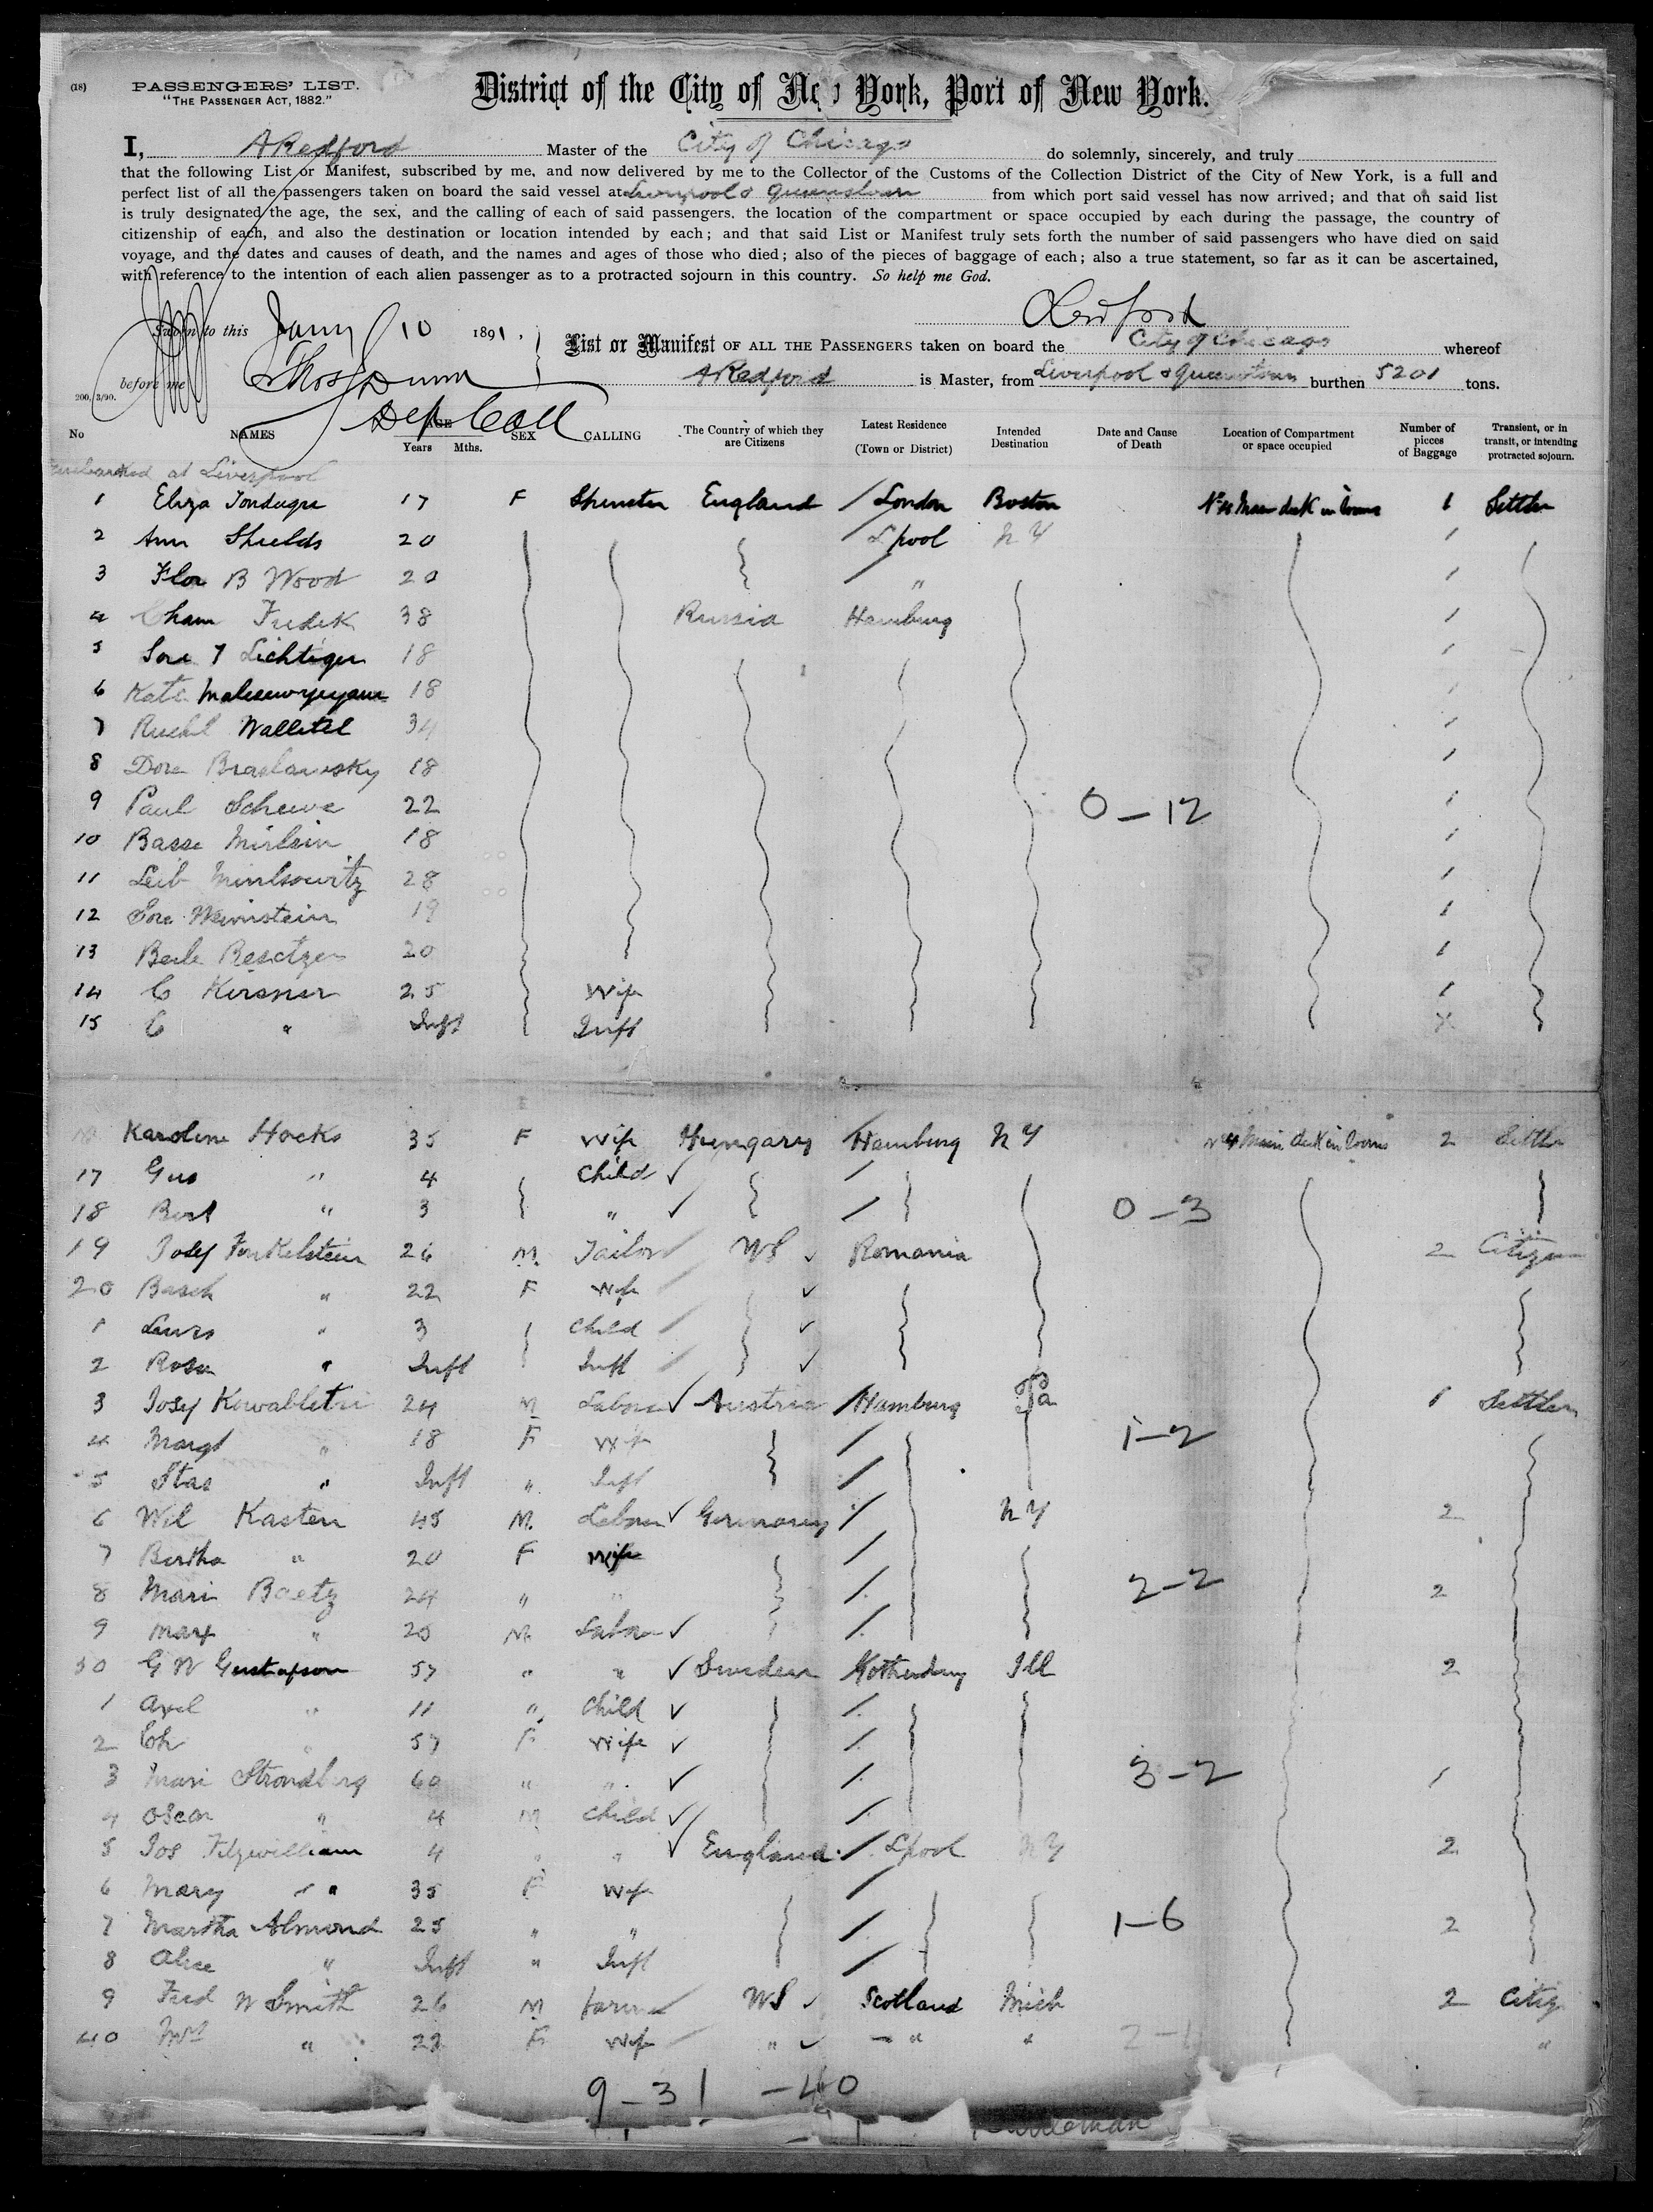 (18)
PASSENGERS' LIST.
"THE PASSENGER ACT, 1882."
District of the City of New York, Port of New York.
I, A Redford Master of the City of Chicago do solemnly, sincerely, and truly
that the following List or Manifest, subscribed by me, and now delivered by me to the Collector of the Customs of the Collection District of the City of New York, is a full and
perfect list of all the passengers taken on board the said vessel at Liverpool & Queenstown from which port said vessel has now arrived; and that on said list
is truly designated the age, the sex, and the calling of each of said passengers. the location of the compartment or space occupied by each during the passage, the country of
citizenship of each, and also the destination or location intended by each; and that said List or Manifest truly sets forth the number of said passengers who have died on said
voyage, and the dates and causes of death, and the names and ages of those who died; also of the pieces of baggage of each; also a true statement, so far as it can be ascertained,
with reference to the intention of each alien passenger as to a protracted sojourn in this country. So help me God.
Redford
Sworn to this Jany 10 1891.
List or Manifest OF ALL THE PASSENGERS taken on board the City of Chicago whereof
before me Thos Dunn
A Redford is Master, from Liverpool & Queenstown burthen 5201 tons.
200, 3/90.
Dep Coll
No NAMES AGE Years Mths. SEX CALLING The Country of which they are Citizens Latest Residence (Town or District) Intended Destination Date and Cause of Death Location of Compartment or space occupied Number of pieces of Baggage Transient, or in transit, or intending protracted sojourn.
Embarked at Liverpool
1 Eliza 17 F Spinster England / London Boston Main deck 1 Settler
2 Ann Shields 20 / Lpool NY 1
3 Flor B Wood 20 / " 1
4 Cham Fridek 38 Russia Hamburg 1
5 Sore Lichtiger 18 1
6 Kate 18 1
7 Ruchl Wallitel 34 1
8 Dora Braslawsky 18 1
9 Paul Schewe 22 0-12 1
10 Basse Mirlsin 18 1
11 Leib 28 1
12 Sore Weinstein 19 1
13 Beile Resctzer 20 1
14 C Kirsner 25 Wife 1
15 C " Inft Inft X
Karoline Hocks 35 F Wife Hungary / Hamburg NY Main deck 2 Settler
17 Gus " 4 Child ✓ /
18 Bert " 3 " ✓ / 0-3
19 Josef Finkelstein 26 M Tailor US ✓ Romania 2 Citizen
20 Basch " 22 F Wife ✓
1 Lewis " 3 Child ✓
2 Rosa " Inft Inft ✓
3 Josef 24 M Labour ✓ Austria / Hamburg Pa 1 Settler
4 Margt " 18 F Wife / 1-2
5 Stas " Inft " Inft /
6 Wil Kasten 45 M Labour ✓ Germany / NY 2
7 Bertha " 20 F Wife /
8 Mari Baetz 24 " " / 2-2 2
9 Marx " 20 M Labour ✓ /
30 G W Gustafson 57 " " ✓ Sweden Gothenburg Ill 2
1 Axel " 11 " Child ✓ /
2 57 F Wife ✓ /
3 Mari Strondberg 60 " " ✓ / 3-2 1
4 Oscar " 4 M Child ✓ /
5 Jos Fitzwilliam 4 " " ✓ England / Lpool NY 2
6 Mary " 35 F Wife /
7 Martha Almond 25 " " / 1-6 2
8 Alice " Inft " Inft /
9 Fred W Smith 26 M farmer US ✓ Scotland Mich 2 Citiz
40 Mrs " 22 F Wife " ✓ " " 2-1 "
9-31 -40